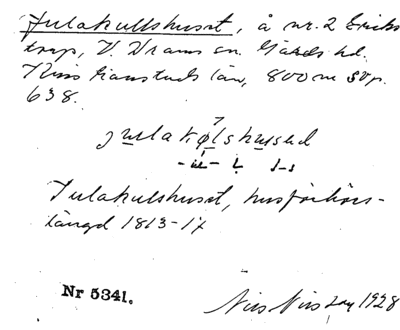 Julakullshuset, å nr. 2 Ericks
torp, V. Vram sn. Gärds hd.
Kristianstads län, 800 m SV p.
638.
julakølshusəd
Julakulshuset, husförhörs-
längd 1813-17
Nr 5341.
1928